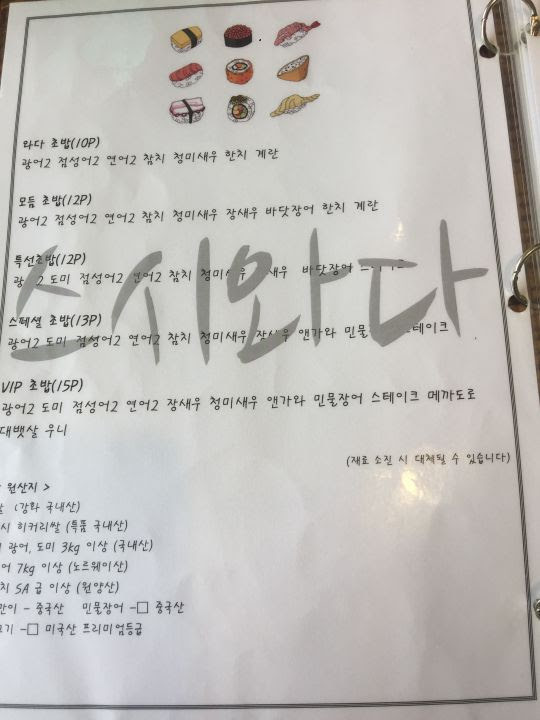 와다 초밥(10P)
광어2 점성어2 연어2 참치 청미새우 한치 계란
모듬 초밥(12P)
광어2 점성어2 연어2 참치 청미새우 장새우 바닷장어 한치 계란
스시와다
특선초밥(12P)
도미 점성어2 연어2 참치 바닷장어
스페셜 초밥(13P)
광어2 도미 점성어2 연어2 참치 청미새우 장새우 앤가와 스테이크
VIP 초밥(15P)
광어2 도미 점성어2 연어2 장새우 청미새우 앤가와 민물장어 스테이크 메까도로
대뱃살 우니
(재료 소진 시 대체될 수 있습니다)
원산지 >
(강화 국내산)
히커리쌀 (특품 국내산)
광어, 도미 3kg 이상 (국내산)
7kg 이상 (노르웨이산)
SA 급 이상 (원양산)
- 중국산 민물장어 -□ 중국산
-□ 미국산 프리미엄등급